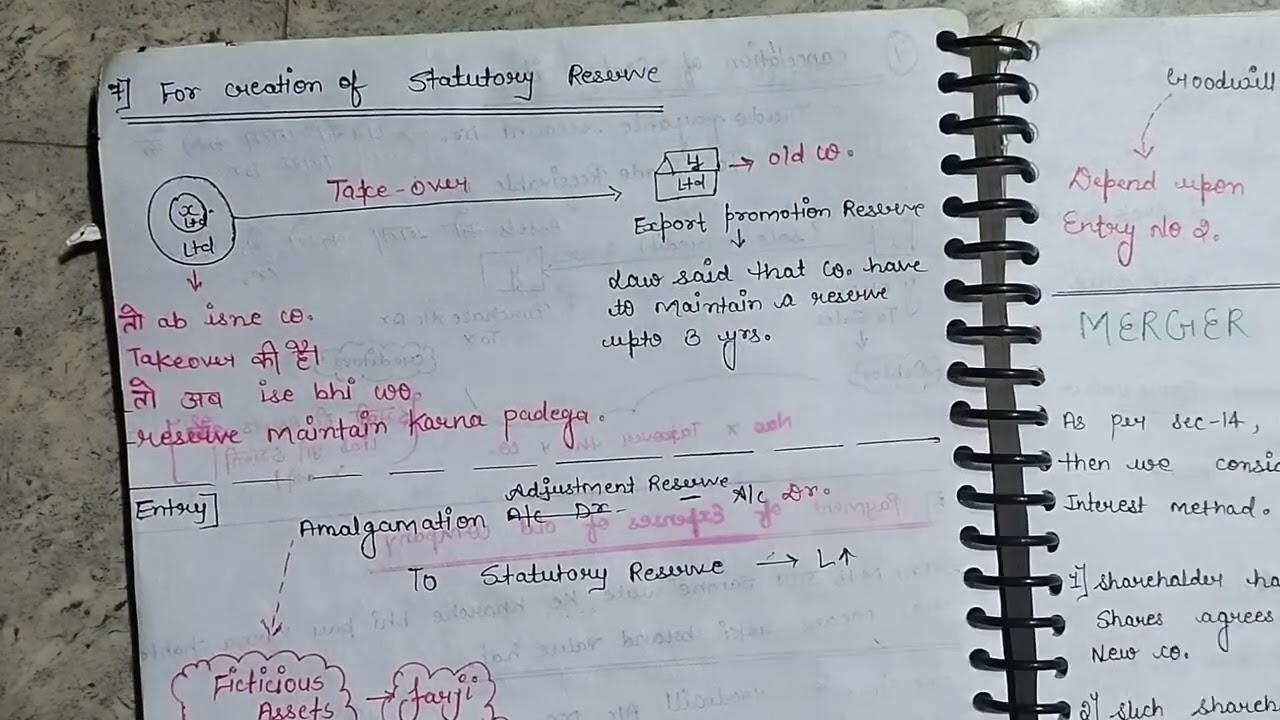 7] For creation of Statutory Reserve
x Ltd
Ltd
Take-over
y Ltd → old co.
Export promotion Reserve
Law said that co. have
to maintain a reserve
upto 3 yrs.
तो ab isne co.
Takeover की है।
तो अब ise bhi wo
reserve maintain karna padega.
Entry]
Adjustment Reserve
Amalgamation A/c Dr. A/c Dr.
To Statutory Reserve → L↑
Ficticious
Assets
→ farji
Goodwill
Depend upon
Entry No 2.
MERGER
As per sec-14,
then we consid
Interest methad.
1] shareholder ha
Shares agrees
New co.
2] such shareh